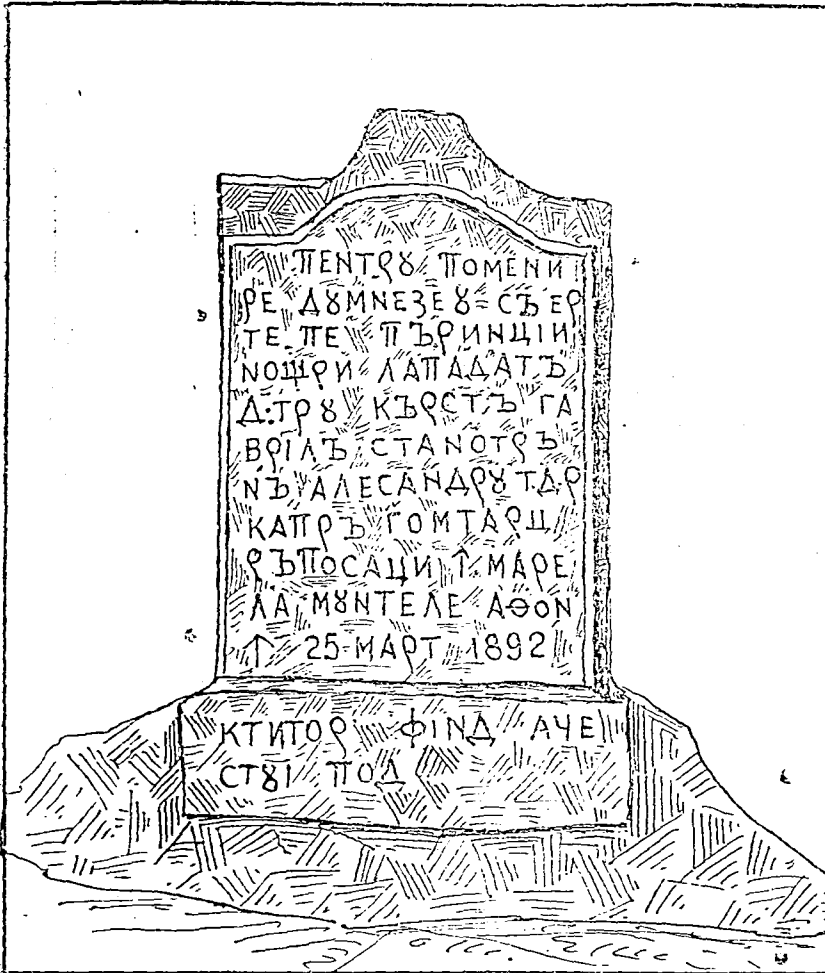 ПЕНТРȣ ПОМЕНИ
РЕ ДȣМНЕЗЕȣ = СЪ ЕР
ТЕ ПЕ ПЪРИНЦІИ
НОЩРИ ЛАПАДАТЪ
Д:ТРȣ КЪРСТЪ ГА
ВРІЛЪ СТАНОТРЪ
НЪ АЛЕСАНДРȣ Т.Д.Р
КАПРЪ ГОМТАРЦ
РЪПОСАЦИ ꙟ МАРЕ
ЛА МȣНТЕЛЕ АѲОН
ꙟ 25 МАРТ 1892
КТИТОР ФІНД АЧЕ
СТȣІ ПОД